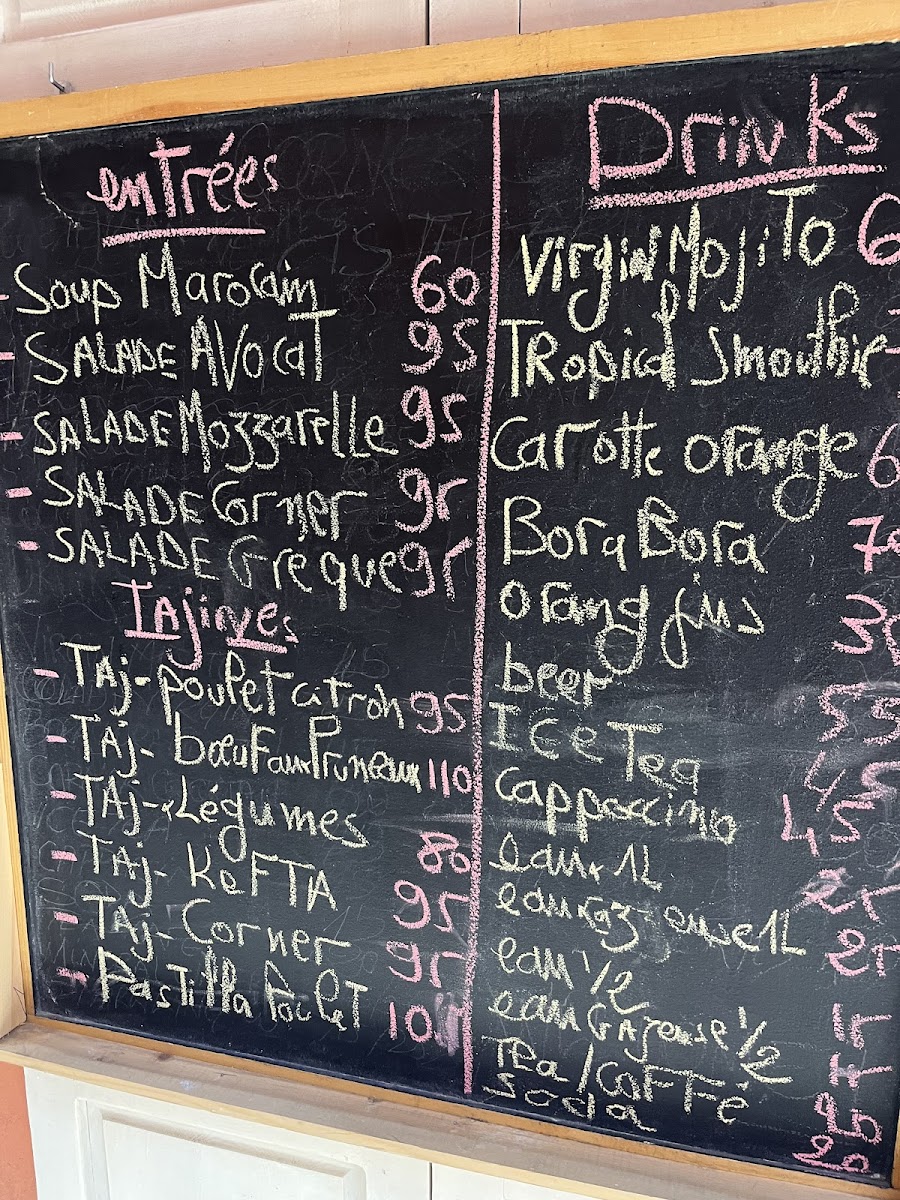 entrées
- Soup Marocain 60
- SALADE AVOCAT 95
- SALADE Mozzarelle 95
- SALADE Corner 95
- SALADE Greque 95
TAjines
- TAj-poulet citron 95
- TAj- bœuf aux Pruneaux 110
- TAj- Légumes 80
- TAj- KeFTA 95
- TAj-Corner 95
- Pastilla Poulet
Drinks
Virgin MojiTo
TRopical Smouthie
Carotte orange
Bora Bora
Orang jus
beer 55
ICe Tea 45
Cappoccino 45
eau 1L 25
eau gazeuse 1L 25
eau 1/2 15
eau GAzeuse 1/2 15
Tea/CoFFé
soda